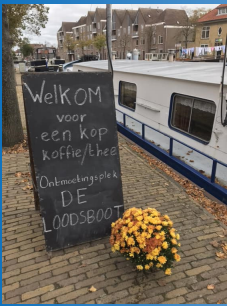 WELKOM
voor
een kop
koffie/thee
Ontmoetingsplek
DE
LOODSBOOT